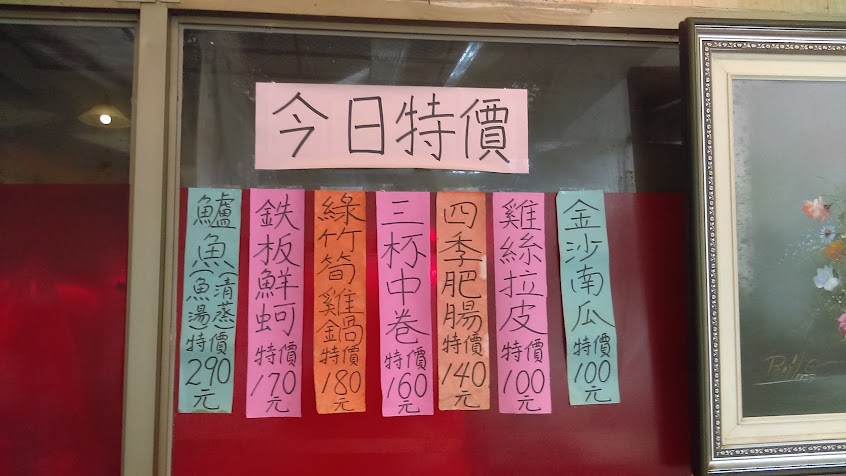 今日特價
金沙南瓜特價100元
雞絲拉皮特價100元
四季肥腸特價140元
三杯中卷特價160元
綠竹筍雞鍋特價180元
鉄板鮮蚵特價170元
鱸魚(清蒸)(魚湯)特價290元